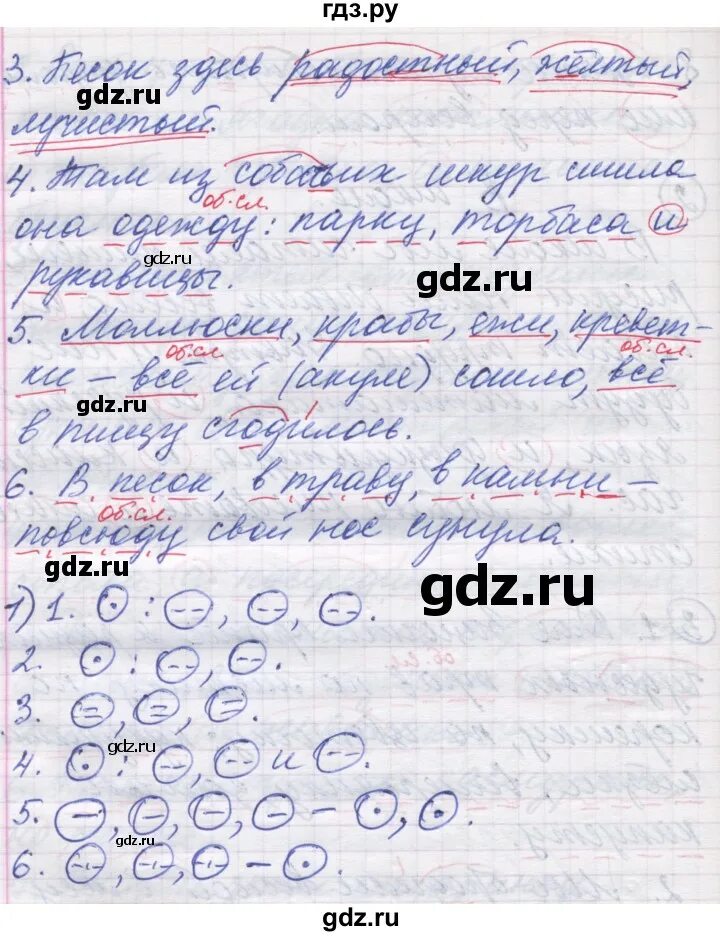 гдз.ру
3. Песок здесь радостный, жёлтый,
gdz.ru
лучистый.
4. Там из собачьих шкур сшила
об.сл.
она одежду: парку, торбаса и
рукавицы.
gdz.ru
gdz.ru
5. Моллюски, крабы, ежи, кревет-
об.сл. об.сл.
ки – всё ей (акуле) сошло, всё
gdz.ru
в пищу сгодилось.
6. В песок, в траву, в камни –
об.сл.
повсюду свой нос сунула.
gdz.ru
gdz.ru
1) 1. : , , .
2. : , .
3. , , .
gdz.ru
4. : , и .
5. , , , – , .
gdz.ru
6. , , – .
gdz.ru